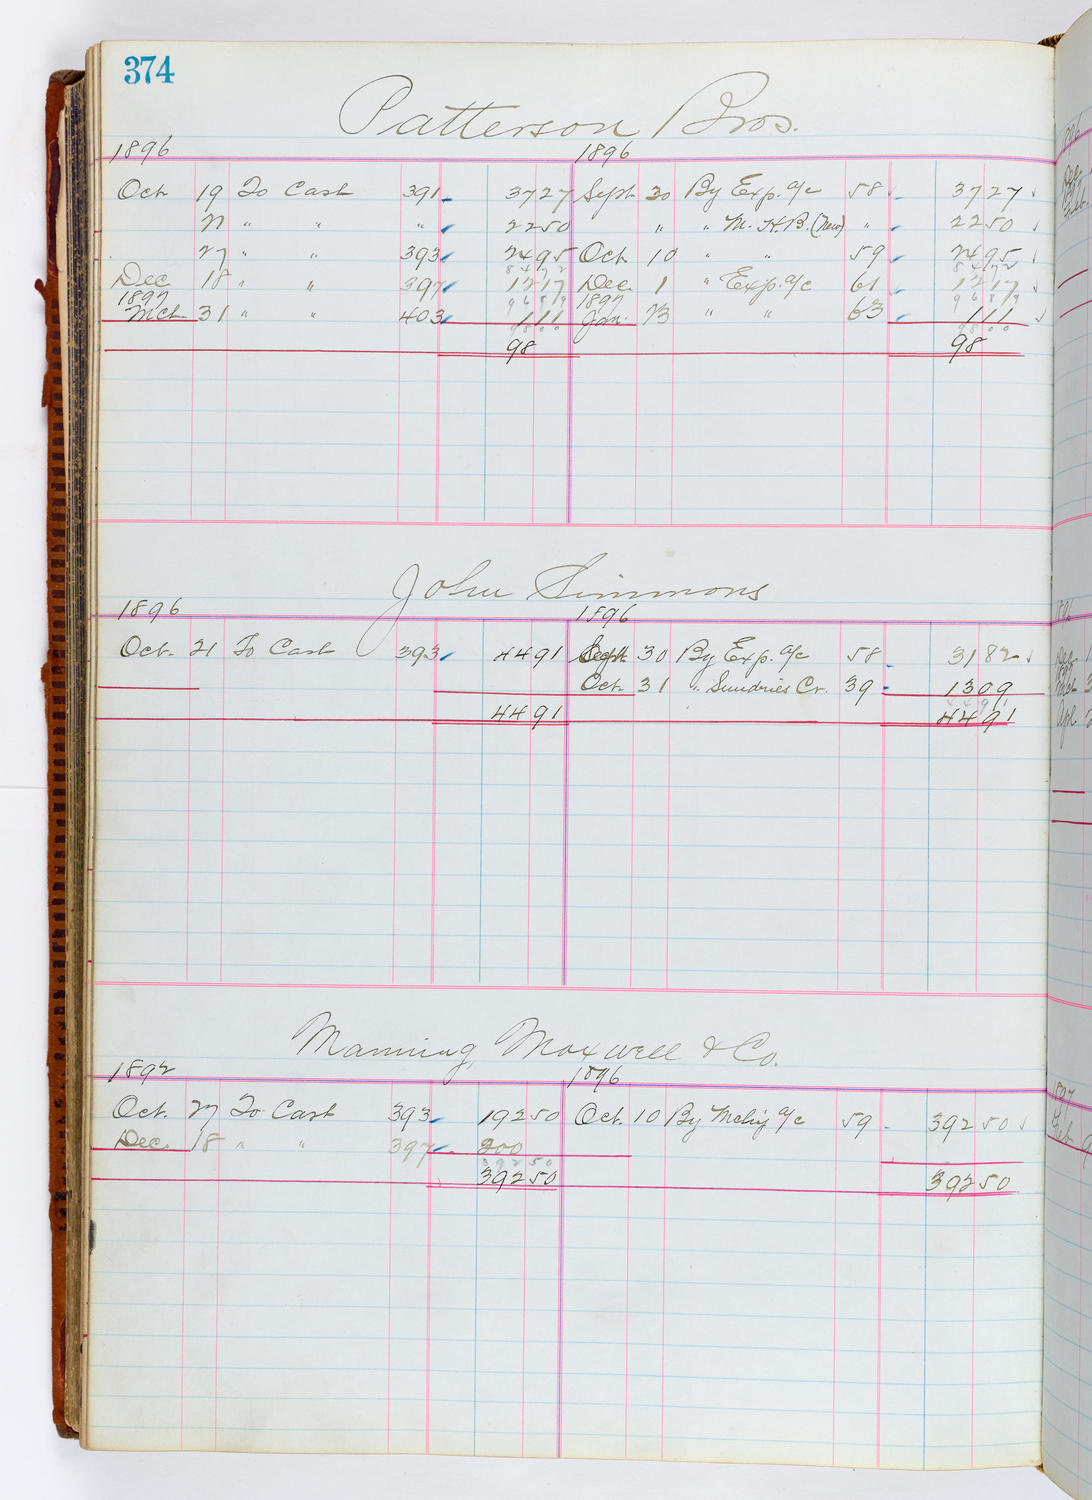 374
Patterson Bros.
1896 1896
Oct 19 To Cash 391 37 27 Sept 30 By Exp. a/c 58 37 27
21 " " " 22 50 " " M. H. B. (New) " 22 50
27 " " 393 24 95 Oct 10 " " 59 24 95
84 72 84 72
Dec 18 " " 397 12 17 Dec. 1 " Exp. a/c 61 12 17
1897 96 89 1897 96 89
Mch 31 " " 403 1 11 Jan. 23 " " 63 1 11
98 00 98 00
98 98
John Simmons
1896 1896
Oct. 21 To Cash 393 44 91 Sept 30 By Exp. a/c 58 31 82
Oct. 31 " Sundries Cr. 39 13 09
44 91
44 91 44 91
Manning, Maxwell & Co.
1892 1896
Oct. 27 To Cash 393 192 50 Oct. 10 By Mchy a/c 59 392 50
Dec. 18 " " 397 200
392 50
392 50 392 50